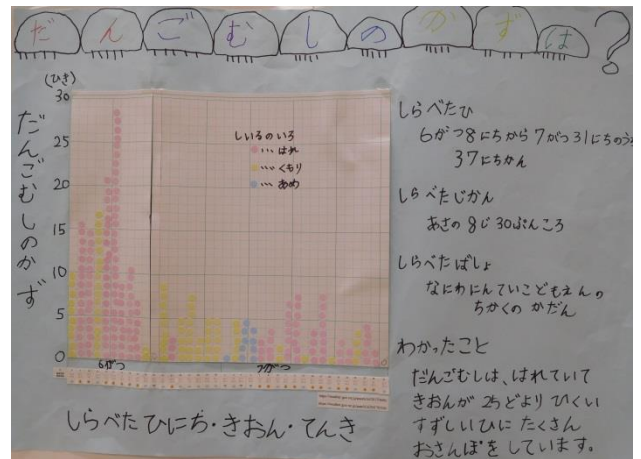 だんごむしのかずは?
(ひき)
だんごむしのかず
30
25
20
15
10
5
0
しいるのいろ
…はれ
…くもり
…あめ
6がつ
7がつ
しらべたひにち・きおん・てんき
しらべたひ
6がつ8にちから7がつ31にちのうち
37にちかん
しらべたじかん
あさの8じ30ぷんころ
しらべたばしょ
なにわにんていこどもえんの
ちかくのかだん
わかったこと
だんごむしは、はれていて
きおんが25どよりひくい
すずしいひにたくさん
おさんぽをしています。